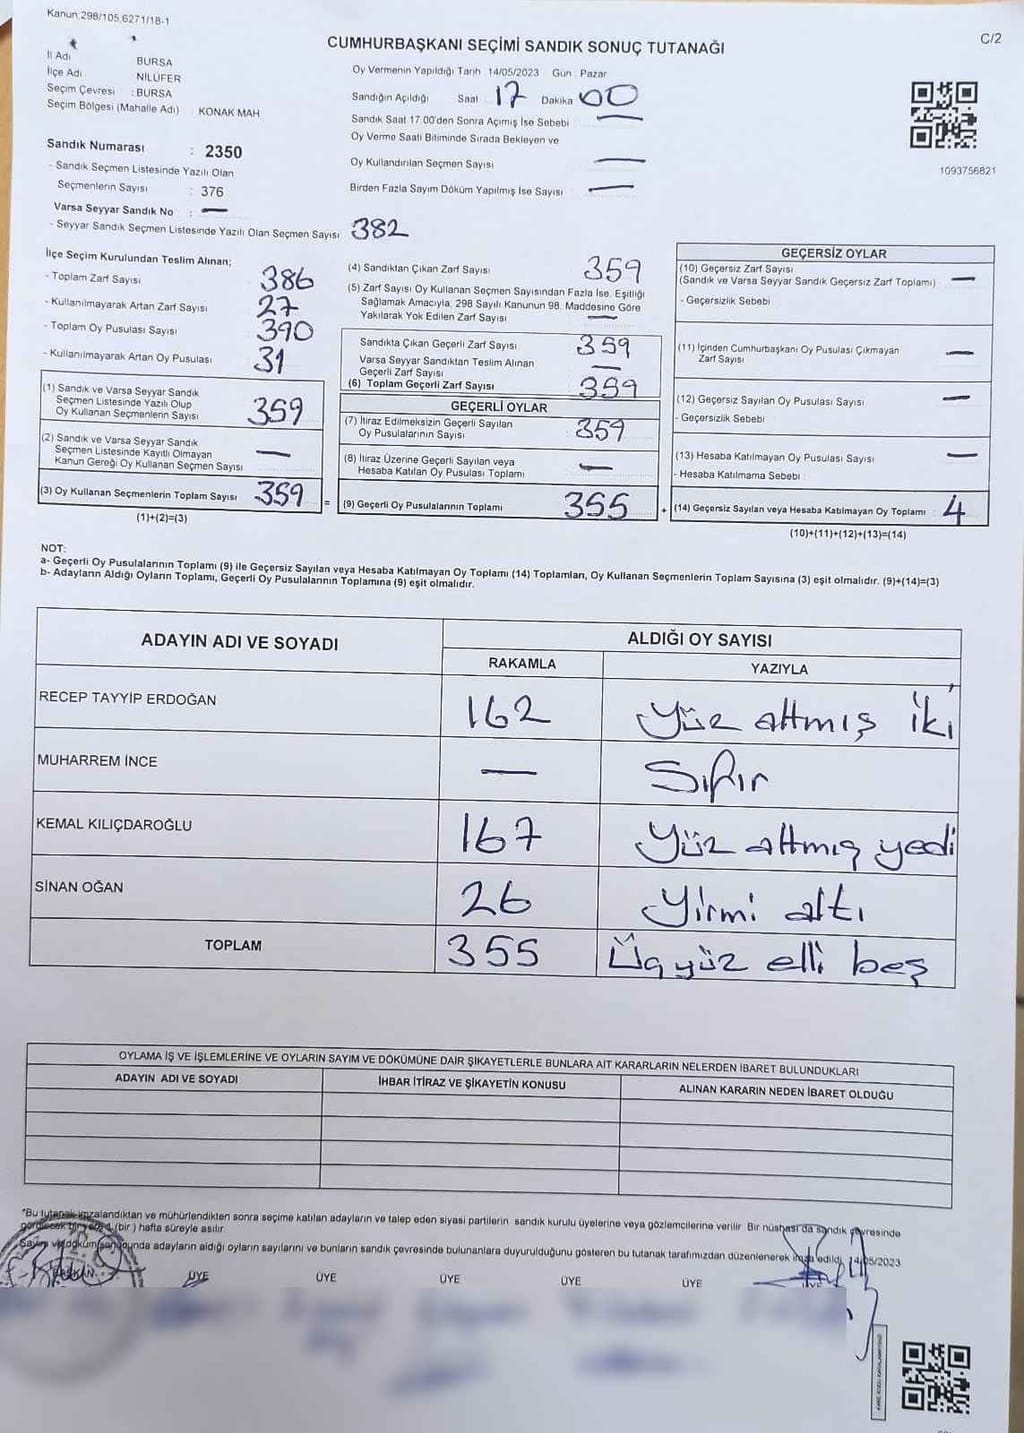 Kanun 298/105,6271/18-1
C/2
CUMHURBAŞKANI SEÇİMİ SANDIK SONUÇ TUTANAĞI
İl Adı BURSA
İlçe Adı NİLÜFER
Seçim Çevresi : BURSA
Seçim Bölgesi (Mahalle Adı) KONAK MAH
Sandık Numarası : 2350
- Sandık Seçmen Listesinde Yazılı Olan
Seçmenlerin Sayısı : 376
Varsa Seyyar Sandık No : —
- Seyyar Sandık Seçmen Listesinde Yazılı Olan Seçmen Sayısı 382
Oy Vermenin Yapıldığı Tarih 14/05/2023 Gün : Pazar
Sandığın Açıldığı Saat 17 Dakika 00
Sandık Saat 17.00'den Sonra Açımış İse Sebebi —
Oy Verme Saati Bitiminde Sırada Bekleyen ve
Oy Kullandırılan Seçmen Sayısı —
Birden Fazla Sayım Döküm Yapılmış İse Sayısı —
1093756821
İlçe Seçim Kurulundan Teslim Alınan;
- Toplam Zarf Sayısı 386
- Kullanılmayarak Artan Zarf Sayısı 27
- Toplam Oy Pusulası Sayısı 390
- Kullanılmayarak Artan Oy Pusulası 31
(1) Sandık ve Varsa Seyyar Sandık
Seçmen Listesinde Yazılı Olup
Oy Kullanan Seçmenlerin Sayısı 359
(2) Sandık ve Varsa Seyyar Sandık
Seçmen Listesinde Kayıtlı Olmayan
Kanun Gereği Oy Kullanan Seçmen Sayısı —
(3) Oy Kullanan Seçmenlerin Toplam Sayısı 359 =
(1)+(2)=(3)
(4) Sandıktan Çıkan Zarf Sayısı 359
(5) Zarf Sayısı Oy Kullanan Seçmen Sayısından Fazla İse, Eşitliği
Sağlamak Amacıyla, 298 Sayılı Kanunun 98. Maddesine Göre
Yakılarak Yok Edilen Zarf Sayısı —
Sandıkta Çıkan Geçerli Zarf Sayısı 359
Varsa Seyyar Sandıktan Teslim Alınan
Geçerli Zarf Sayısı —
(6) Toplam Geçerli Zarf Sayısı 359
GEÇERLİ OYLAR
(7) İtiraz Edilmeksizin Geçerli Sayılan
Oy Pusulalarının Sayısı 359
(8) İtiraz Üzerine Geçerli Sayılan veya
Hesaba Katılan Oy Pusulası Toplamı —
(9) Geçerli Oy Pusulalarının Toplamı 355 +
GEÇERSİZ OYLAR
(10) Geçersiz Zarf Sayısı
(Sandık ve Varsa Seyyar Sandık Geçersiz Zarf Toplamı) —
- Geçersizlik Sebebi
(11) İçinden Cumhurbaşkanı Oy Pusulası Çıkmayan
Zarf Sayısı —
(12) Geçersiz Sayılan Oy Pusulası Sayısı —
- Geçersizlik Sebebi
(13) Hesaba Katılmayan Oy Pusulası Sayısı —
- Hesaba Katılmama Sebebi
(14) Geçersiz Sayılan veya Hesaba Katılmayan Oy Toplamı : 4
(10)+(11)+(12)+(13)=(14)
NOT:
a- Geçerli Oy Pusulalarının Toplamı (9) ile Geçersiz Sayılan veya Hesaba Katılmayan Oy Toplamı (14) Toplamları, Oy Kullanan Seçmenlerin Toplam Sayısına (3) eşit olmalıdır. (9)+(14)=(3)
b- Adayların Aldığı Oyların Toplamı, Geçerli Oy Pusulalarının Toplamına (9) eşit olmalıdır.
ADAYIN ADI VE SOYADI
ALDIĞI OY SAYISI
RAKAMLA YAZIYLA
RECEP TAYYİP ERDOĞAN 162 Yüz altmış iki
MUHARREM İNCE — Sıfır
KEMAL KILIÇDAROĞLU 167 Yüz altmış yedi
SİNAN OĞAN 26 Yirmi altı
TOPLAM 355 Üçyüz elli beş
OYLAMA İŞ VE İŞLEMLERİNE VE OYLARIN SAYIM VE DÖKÜMÜNE DAİR ŞİKAYETLERLE BUNLARA AİT KARARLARIN NELERDEN İBARET BULUNDUKLARI
ADAYIN ADI VE SOYADI İHBAR İTİRAZ VE ŞİKAYETİN KONUSU ALINAN KARARIN NEDEN İBARET OLDUĞU
*Bu tutanak imzalandıktan ve mühürlendikten sonra seçime katılan adayların ve talep eden siyasi partilerin sandık kurulu üyelerine veya gözlemcilerine verilir. Bir nüshası da sandık çevresinde
görülecek bir yere 1 (bir) hafta süreyle asılır.
Sayım ve döküm sonucunda adayların aldığı oyların sayılarını ve bunların sandık çevresinde bulunanlara duyurulduğunu gösteren bu tutanak tarafımızdan düzenlenerek imza edildi. 14/05/2023
BAŞKAN ÜYE ÜYE ÜYE ÜYE ÜYE ÜYE